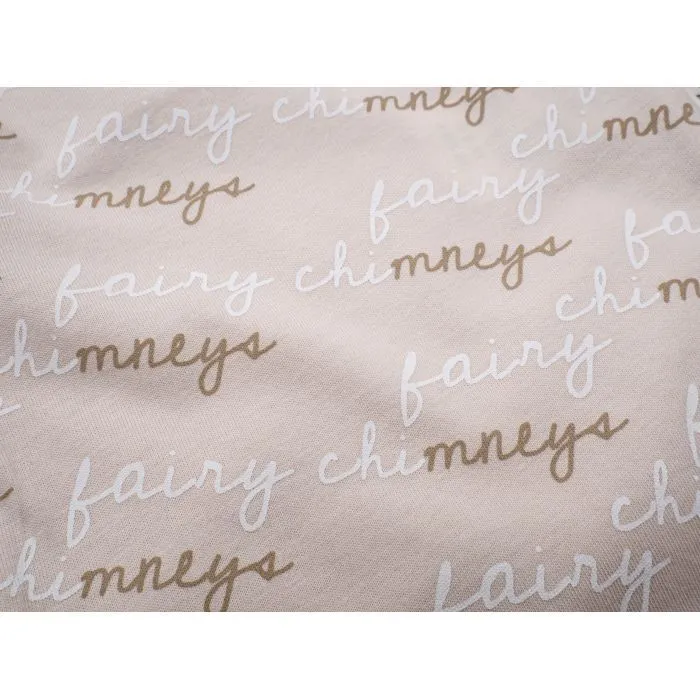 fairy chimneys
chimne
himneys
fairy
fa
fairy chimneys
chim
himneys
fairy
fairy chimneys
chi
himneys
fairy